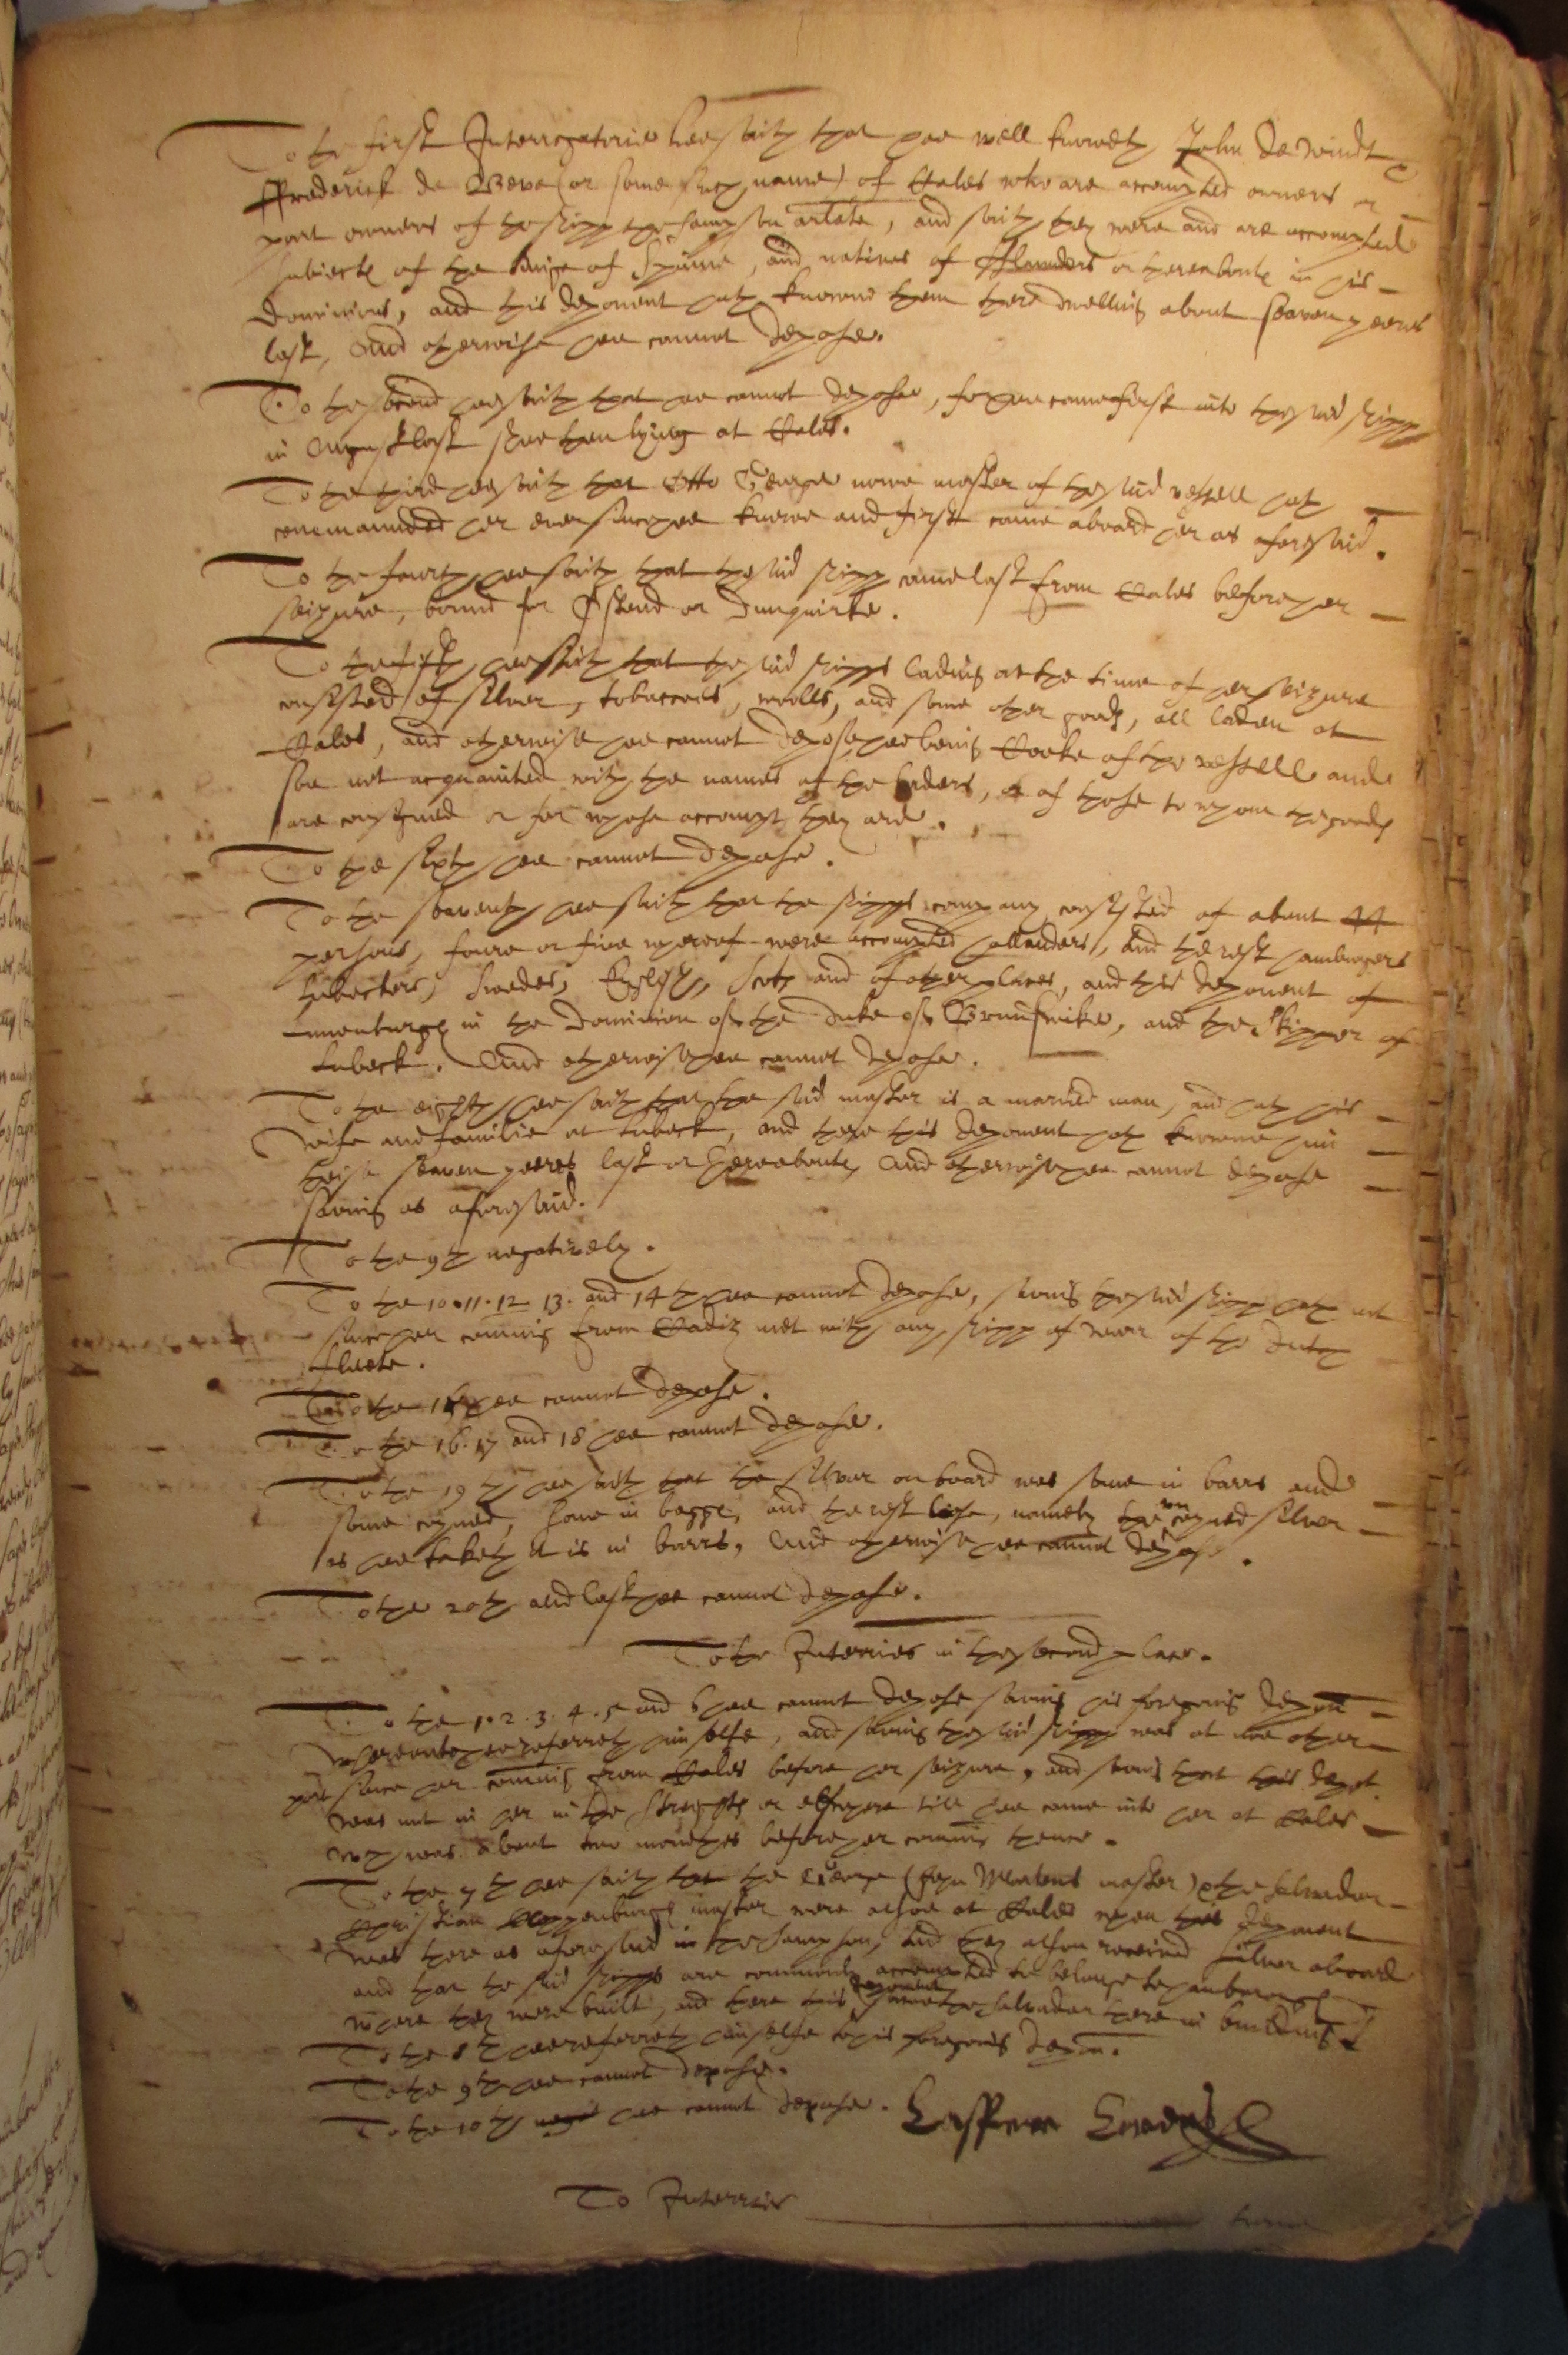 To the first Interrogatorie hee saith that hee well knoweth John de Windt
ffrederick de Beve (or some such name) of Cales who are accompted owners or
part owners of the shipp the Sampson arlate, and saith they were and are accompted
subiects of the kinge of Spaine, and natives of fflanders or thereabouts in his
dominions, and this deponent hath knowne them there dwelling about seaven yeeres
last, And otherwise hee cannot depose.
To the second hee saith that hee cannot depose, for hee came first into the said shipp
in August last shee then lying at Cales.
To the third hee saith that Otto George nowe master of the said vessell hath
commaunded her ever since hee knewe and first came aboard her as aforesaid.
To the fourth hee saith that the said shipp came last from Cales before her
seizure, bound for Ostend or Dunquirke.
To the fifth hee saith that the said shipps lading at the time of her seizure
consisted of silver, tobaccoes, wooll, and some other goods, all laden at
Cales, and otherwise hee cannot depose hee being Cooke of the vessell and
soe not acquainted with the names of the laders, or of those to whom the goods
are consigned or for whose accompt they are.
To the sixth hee cannot depose.
To the seaventh hee saith that the shipps company consisted of about 44
persons, foure or five whereof were accompted hollanders, and the rest hamburgers
lubeckers, Swedes, English, Scots and of other places, and this deponent of
Lunenburgh in the Dominion of the Duke of Brunswike, and the Skipper of
Lubeck. And otherwise hee cannot depose.
To the eighth hee saith that the said master is a married man, and hath his
wife and familie at Lubeck, and there this deponent hath knowne him
theise seaven yeeres last or thereabouts, And otherwise hee cannot depose
saving as aforesaid.
To the 9th negatively.
To the 10. 11. 12. 13. and 14th hee cannot depose, saving the said shipp hath not
since her coming from Cadiz met with any shipp of warr of the Dutch
fleete.
To the 15 hee cannot depose.
To the 16. 17 and 18 hee cannot depose.
To the 19th hee saith that the silver on board was some in barrs and
some coyned, some in baggs, and the rest lose, namely the uncoyned silver
as hee taketh it is in barrs, And otherwise hee cannot depose.
To the 20th and last hee cannot depose.
To the Interries in the second place.
To the 1. 2. 3. 4. 5 and 6 hee cannot depose saving his foregoing depon
whereunto hee referreth himselfe, and saving the said shipp was at noe other
port since her coming from Cales before her seizure, and saving that this depot
was not in her in the Streights or elswhere till hee came into her at Cales
which was about two moneths before her coming thence.
To the 7th hee saith that the George (John Martens master) the Salvador
Christian Cloppenburgh master were alsoe at Cales when this deponent
was there as aforesaid in the Sampson, and they alsoe received silver aboard
and that the said shipps are commonly accompted to belonge to hamborough
where they were built, and there this deponent sawe the Salvador there in building.
To the 8th hee referreth himselfe to his foregoing depon.
To the 9th hee cannot depose.
To the 10th hee cannot depose.
To Interries